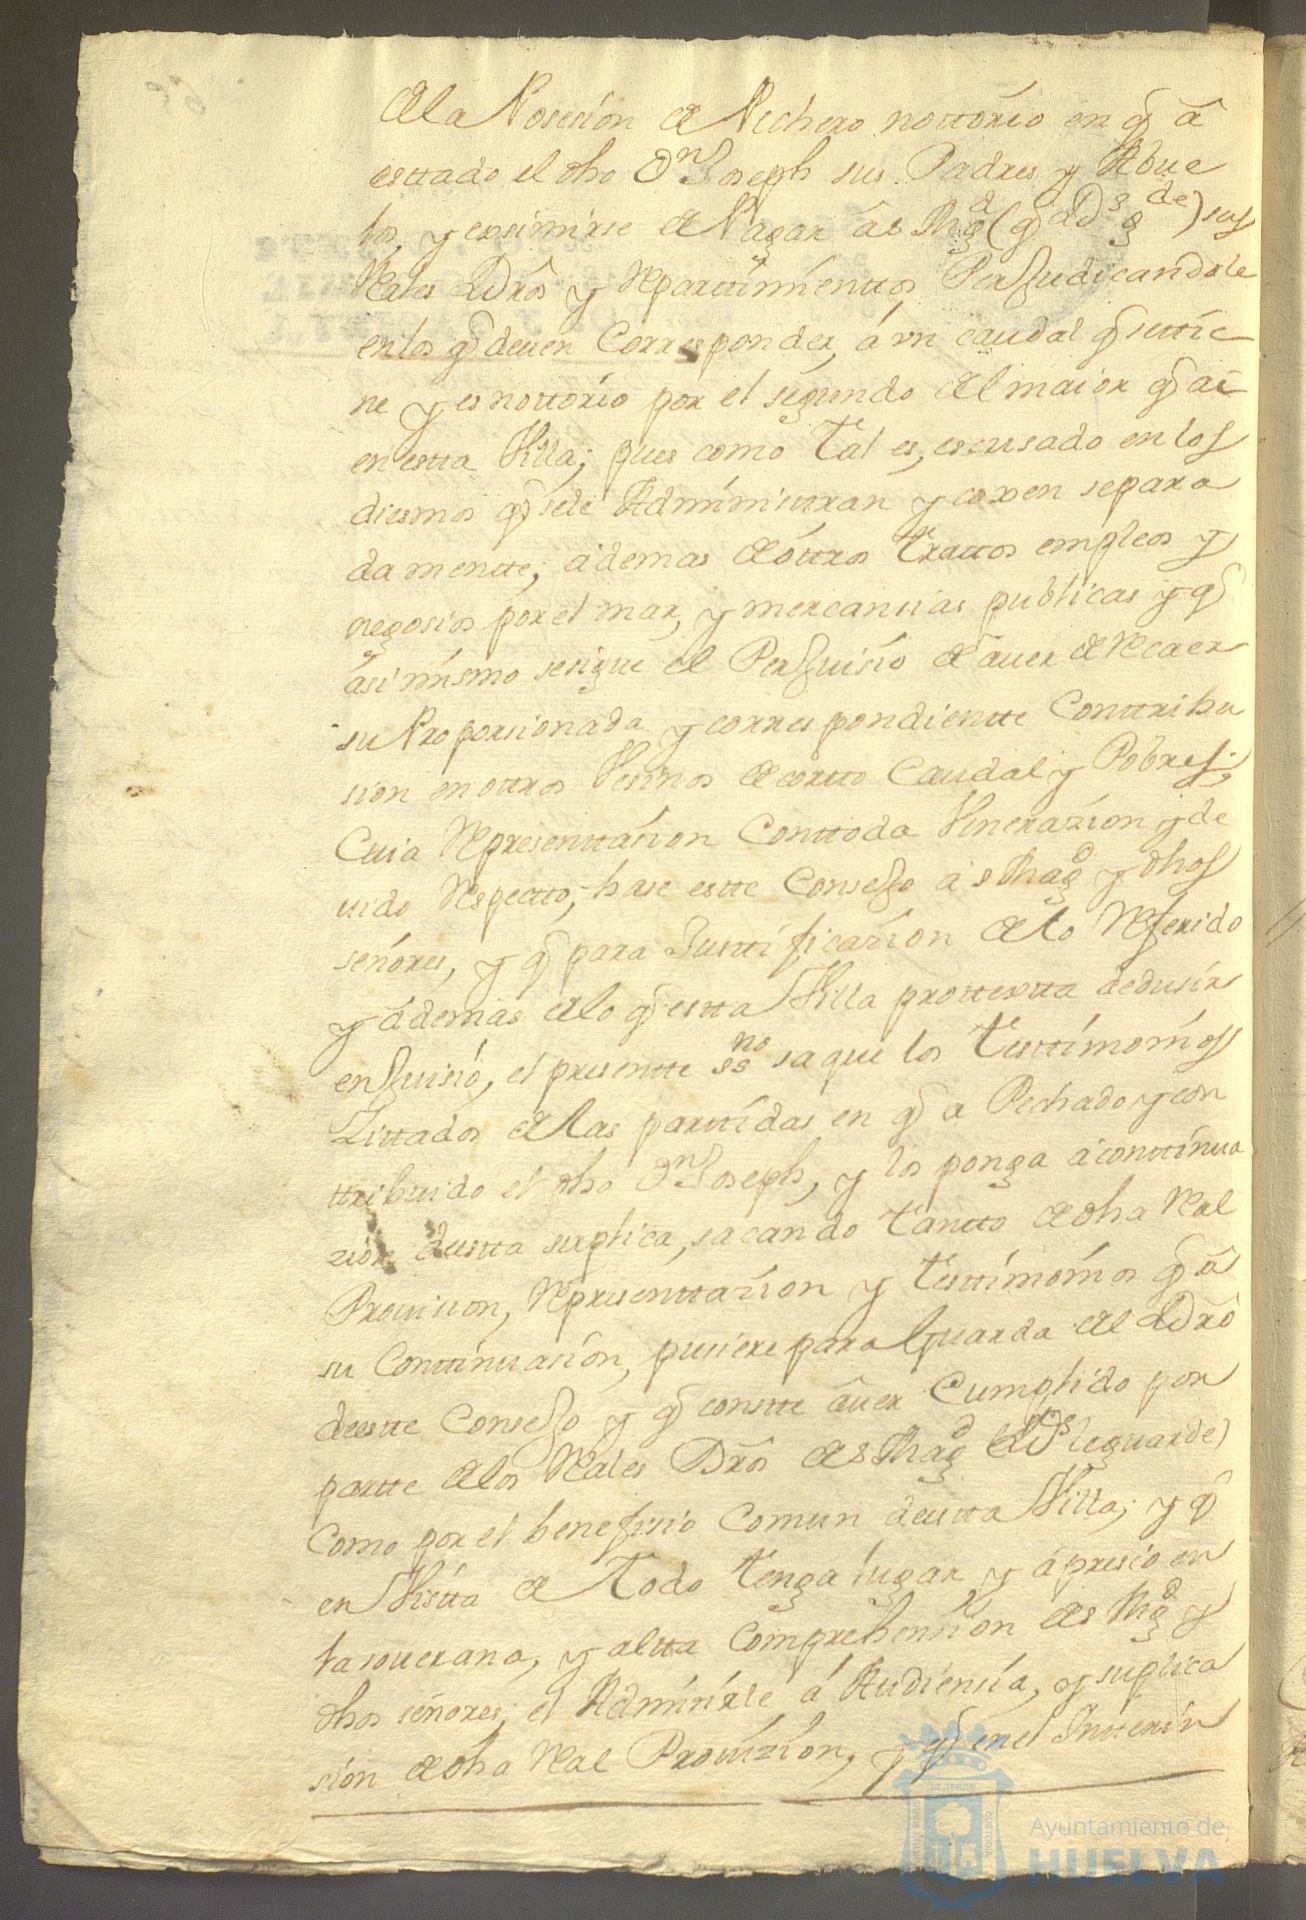 de la Posesión de Pechero nottorio en q̃ â
esttado el dho Dn Joseph sus Padres y Abue
los, y exsimirse de Pagar â s Mg.d (q̃ Ds g.de) sus
Rales Dr̃os y Reparttimienttos Perjudicandole
en los q̃ deuen Corresponder, á vn caudal q̃ se ttie
ne y es nottorio por el segundo del maior q̃ ai
en estta Villa; pues como Tal es, escusado en los
diesmos q̃ se le Administtran y coxen separa
damentte; ádemas de óttros Trattos empleos y
negosios por el mar, y mercansias publicas y q̃
ási mismo se sigue el Perjuisio de âuer de Recaer
su Proporsionada y correspondientte Conttribu
sion en ottros Vesinos de cortto Caudal y Pobres;
Cuia Representtasion Con ttoda Venerazion y de
uido Respectto; hase estte Consejo á s Mag.d y dhos
señores, y q̃ para Justtificazíon de lo Referido
y ádemas de lo q̃ estta Villa prottextta dedusir
en Juisió, el presentte ss.no saque los Testtimonios
Littados de las parttidas en q̃ a Pechado y con
ttribuido el dho Dn Joseph, y los ponga á conttinua
zión de estta suplica, sacando Tantto de dha Real
Prouision, Representtazion y testtimonios q̃ â
su Conttinuasión, pusiere para Guarda del Dr̃o
de estte Consejo y q̃ constte âuer Cumplido por
partte de los Reales Dr̃os de s Mag.d (q̃ Ds le guarde)
Como por el benefisio Comun de estta Villa; y q̃
en Vistta de Todo tenga lugar y ápresio en
la souerana, y altta Comprehension de s Mg.d y
dhos señores; el Admitirle á Audiensia, y suplica
sión de dha Real Prouizión, y q̃ en el Intterin
Ayuntamiento de
HUELVA